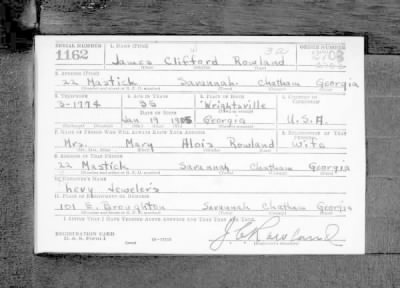 SERIAL NUMBER 1. NAME (Print) ORDER NUMBER
1162 James Clifford Rowland
(First) (Middle) (Last)
2. ADDRESS (Print)
22 Mastick Savannah Chatham Georgia
3. TELEPHONE 4. AGE IN YEARS 5. PLACE OF BIRTH 6. COUNTRY OF CITIZENSHIP
3-1774 35 Wrightsville
DATE OF BIRTH
Jan 19 1905 Georgia U.S.A.
7. NAME OF PERSON WHO WILL ALWAYS KNOW YOUR ADDRESS 8. RELATIONSHIP OF THAT PERSON
Mrs. Mary Alois Rowland Wife
9. ADDRESS OF THAT PERSON
22 Mastick Savannah Chatham Georgia
10. EMPLOYER'S NAME
Levy Jewelers
11. PLACE OF EMPLOYMENT OR BUSINESS
101 E. Broughton Savannah Chatham Georgia
I AFFIRM THAT I HAVE VERIFIED ABOVE ANSWERS AND THAT THEY ARE TRUE.
REGISTRATION CARD
D. S. S. Form 1
J C Rowland